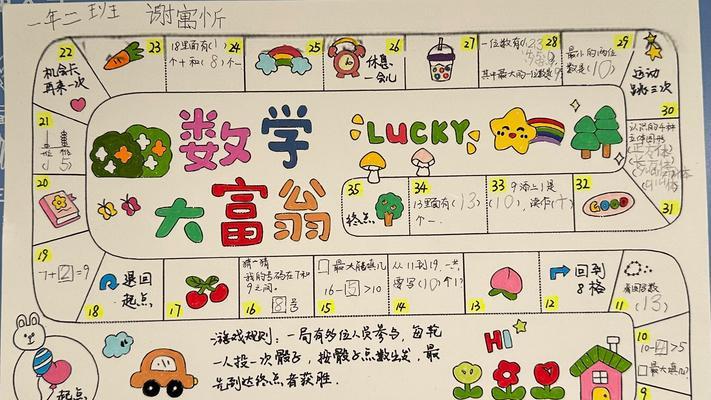 一年二班 谢寓忻
22
机会卡
再来一次
23
18里面有(1)
个十和(8)个一
24
25
26
休息
一会儿
27
28
一位数有(
其中最大的一位数是(9
29
最小的两位
数是(10)
运动
跳三次
30
认识的4种
立体图形
31
21
十位
个位
(15)
20
19
7+2=9
数学
大富翁
LUCKY
35
终点
34
13里面有(13)
个一.
33
9添上1是
(10),读作(十)
32
GOOD
18
退回
起点
17
猜一猜
我的号码在7和
9之间.
16
8号
□最大能填几
16-5>10
15
从11到19,一共
要写(10)个1
14
13
12
回到
8格
11
看图写数
(13)
10
10-4>5
□最大填几?
9
起点
游戏规则:一局有多位人员参与,每轮
一人投一次骰子,按骰子点数出发,最
先到达终点者获胜.
HI